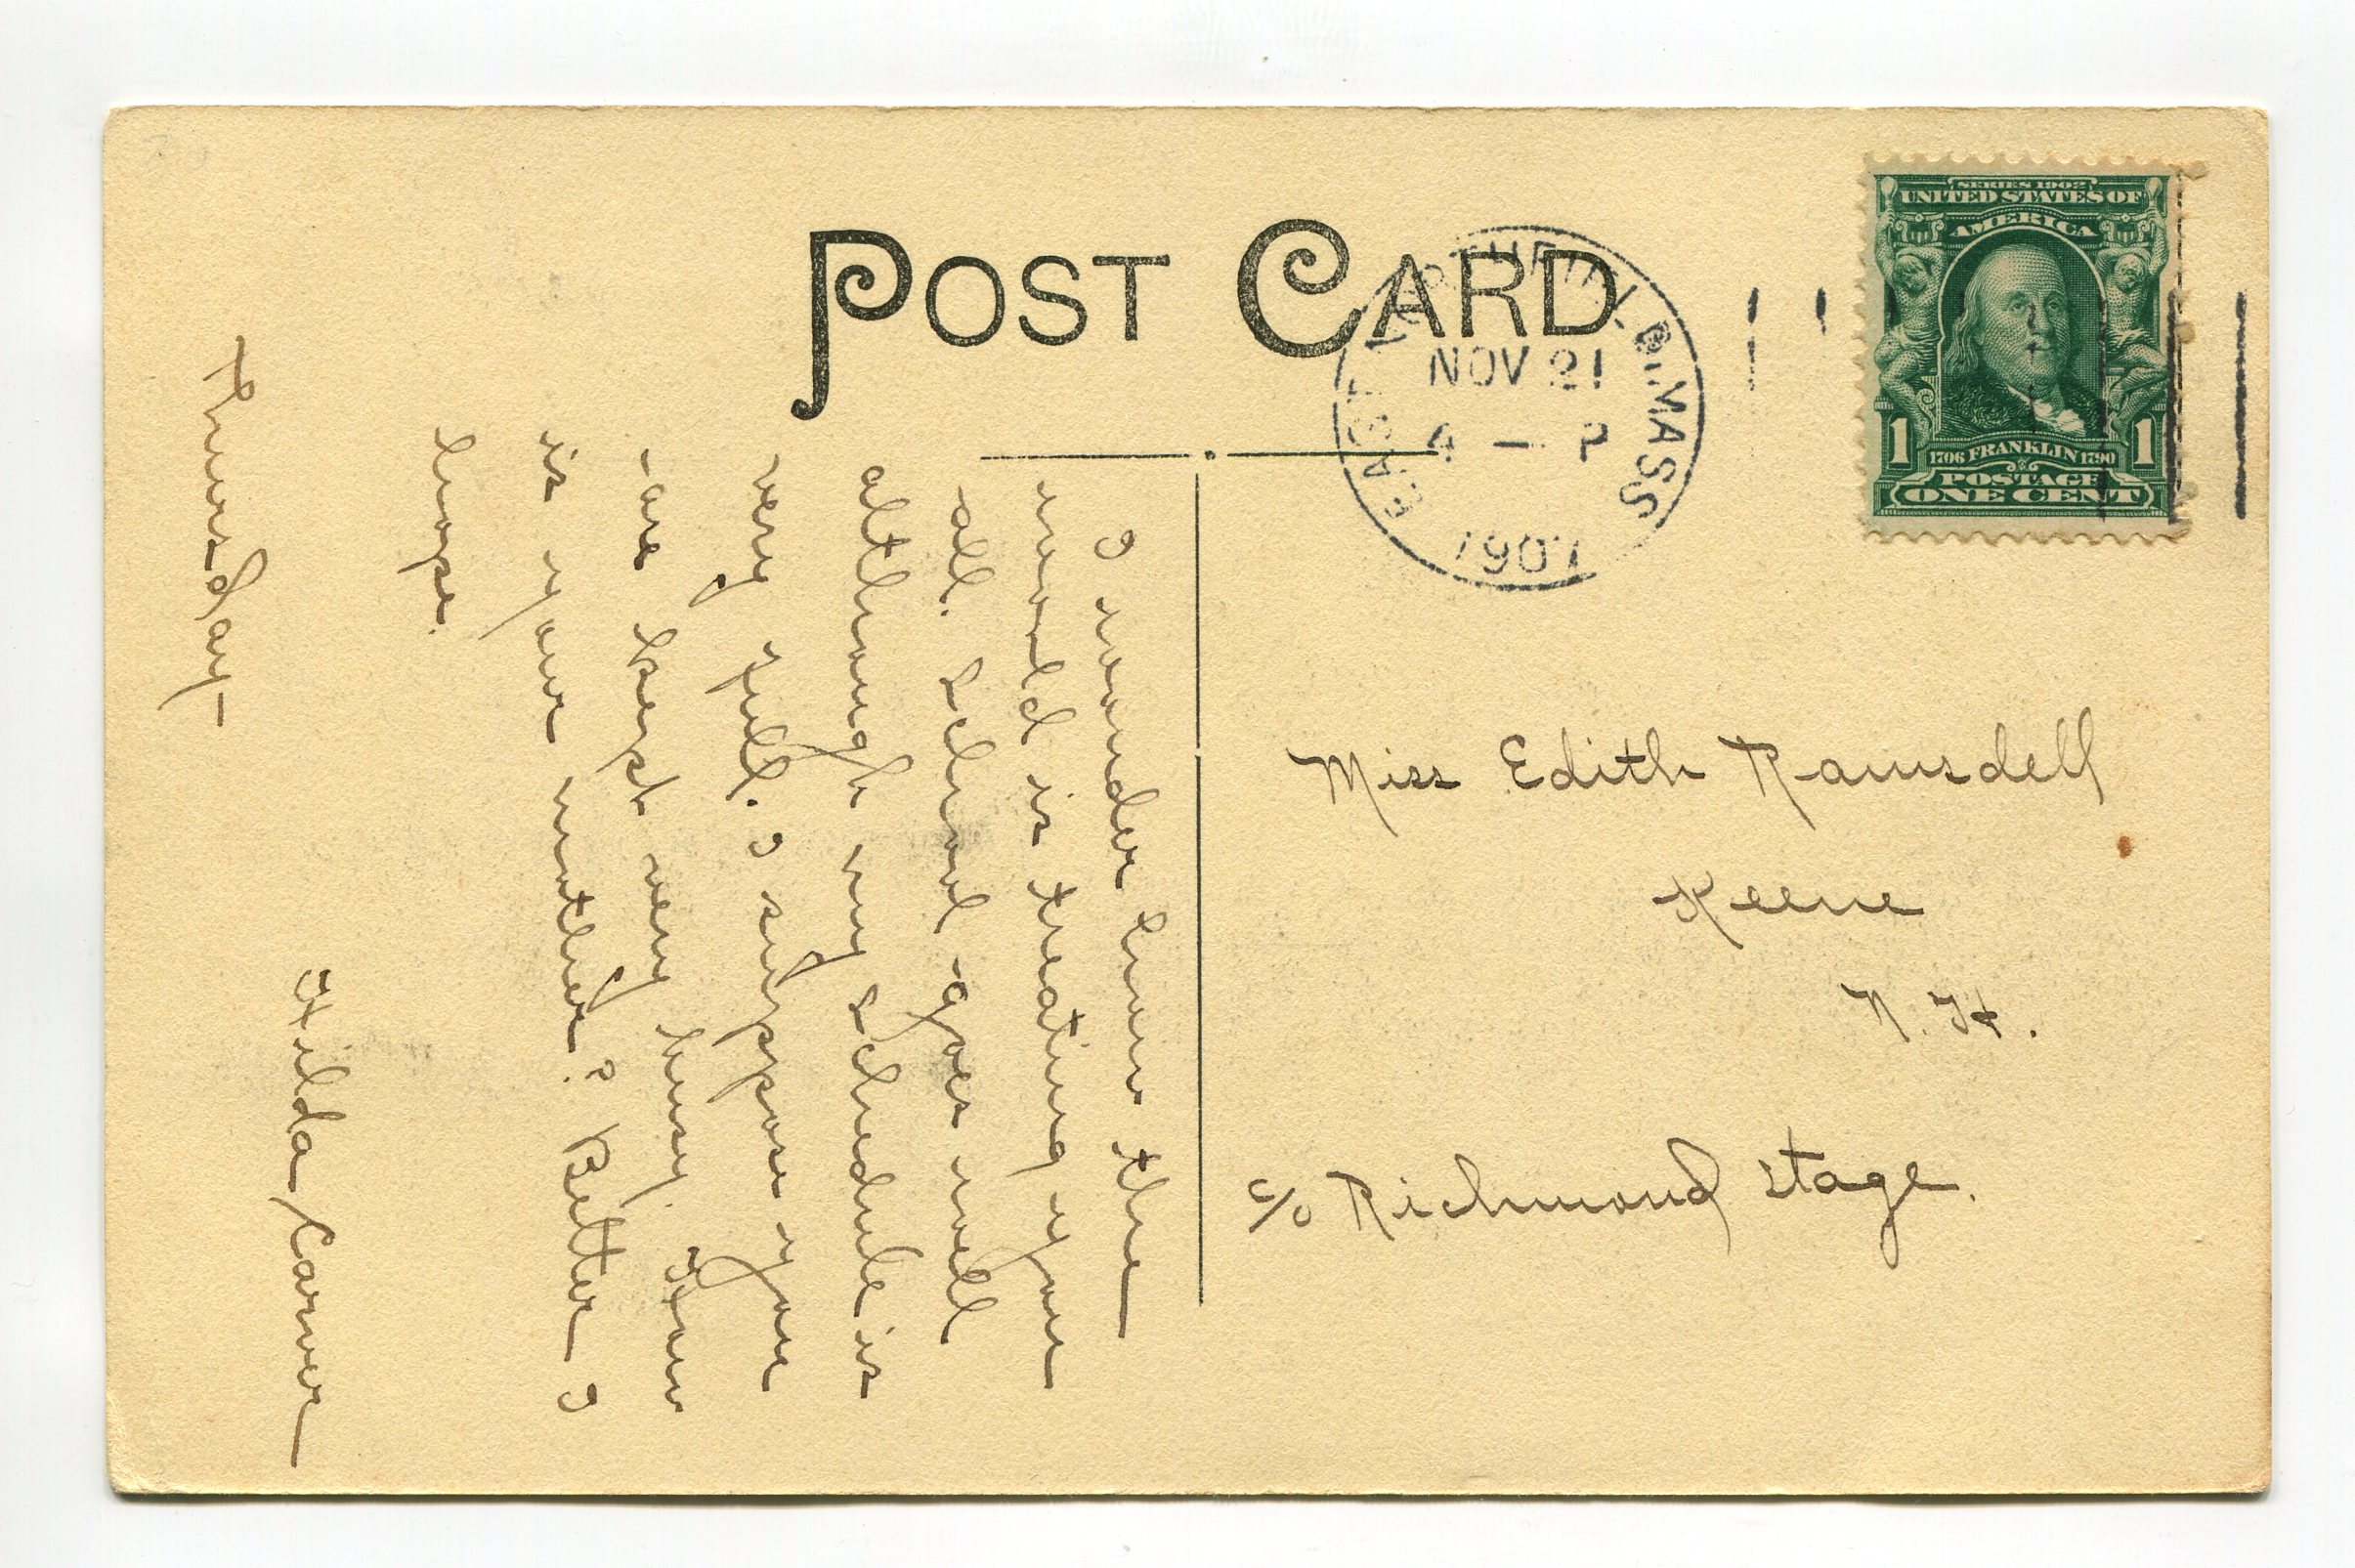 POST CARD
EAST NORTHFIELD. MASS
NOV 21
4 — P
1907
SERIES 1902
UNITED STATES OF
AMERICA
1 1706 FRANKLIN 1790 1
POSTAGE
ONE CENT
I wonder how the
world is treating you
all. School goes well
although my schedule is
very full. I suppose you
are kept very busy. How
is your mother? Better I
hope.
Hilda Carver
Thursday—
Miss Edith Ramsdell
Keene
N. H.
c/o Richmond Stage.